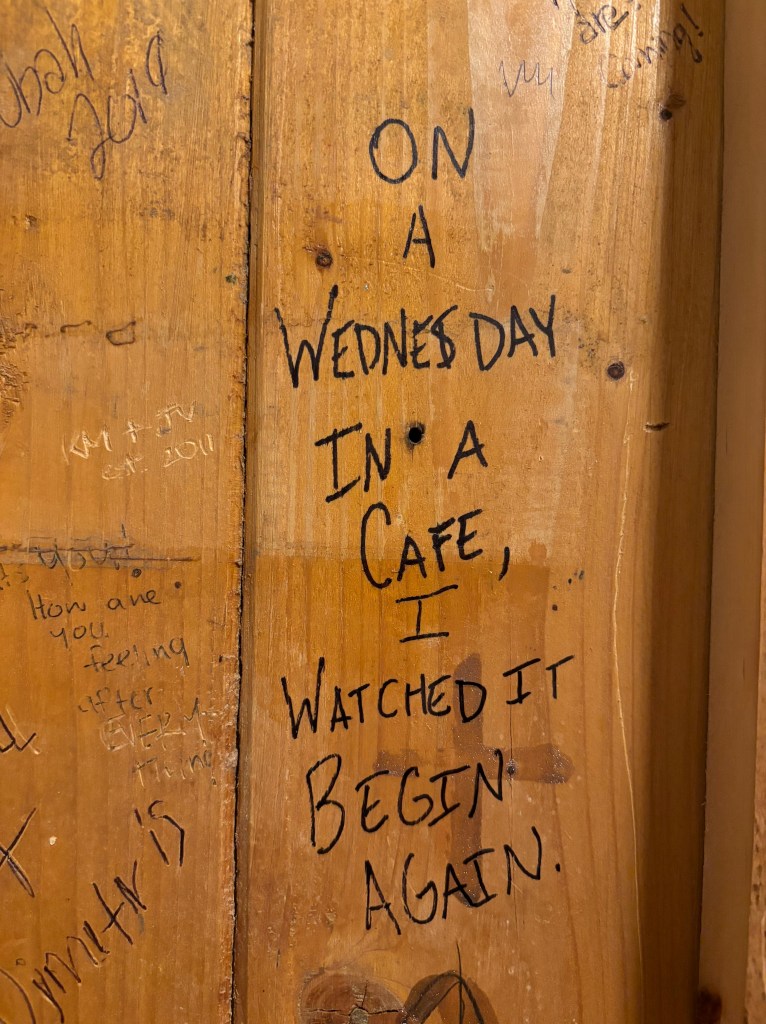 2019
are
coming!
ON
A
WEDNESDAY
IN A
CAFE,
I
WATCHED IT
BEGIN
AGAIN.
KM + JV
est. 2011
you!
How are
you
feeling
after
EVERY
Thing
is